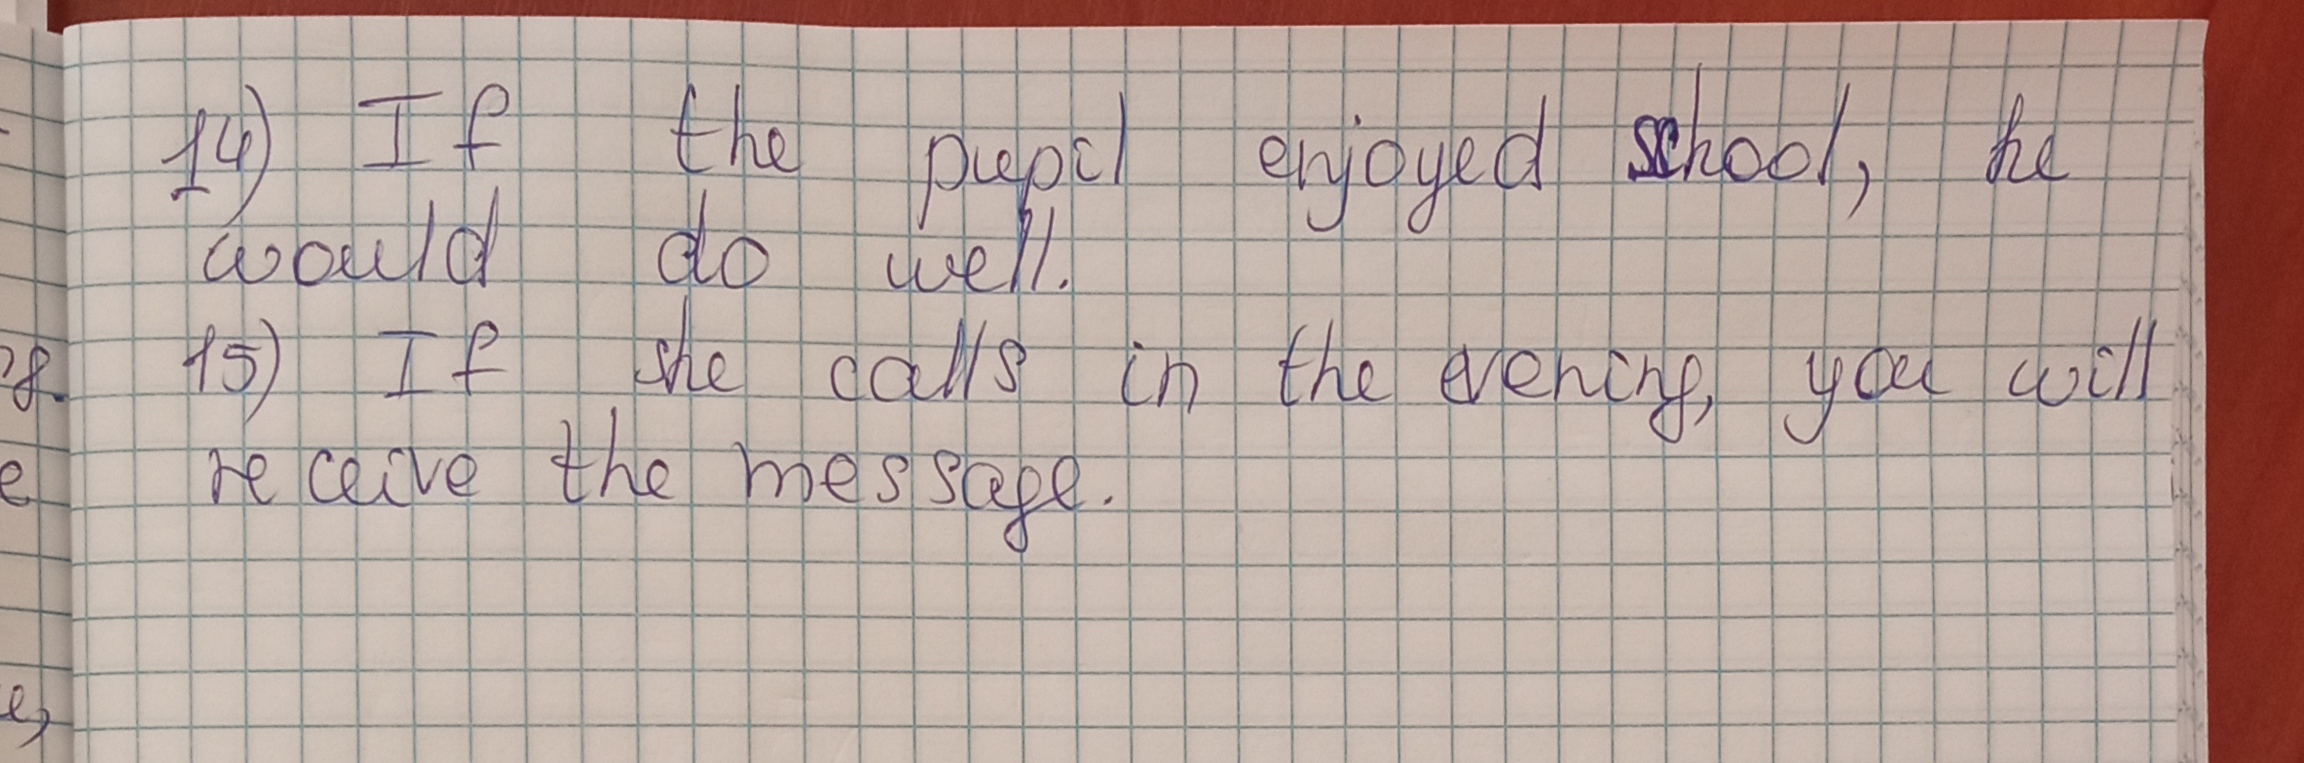 14) If the pupil enjoyed school, he
would do well.
15) If she calls in the evening, you will
receive the message.